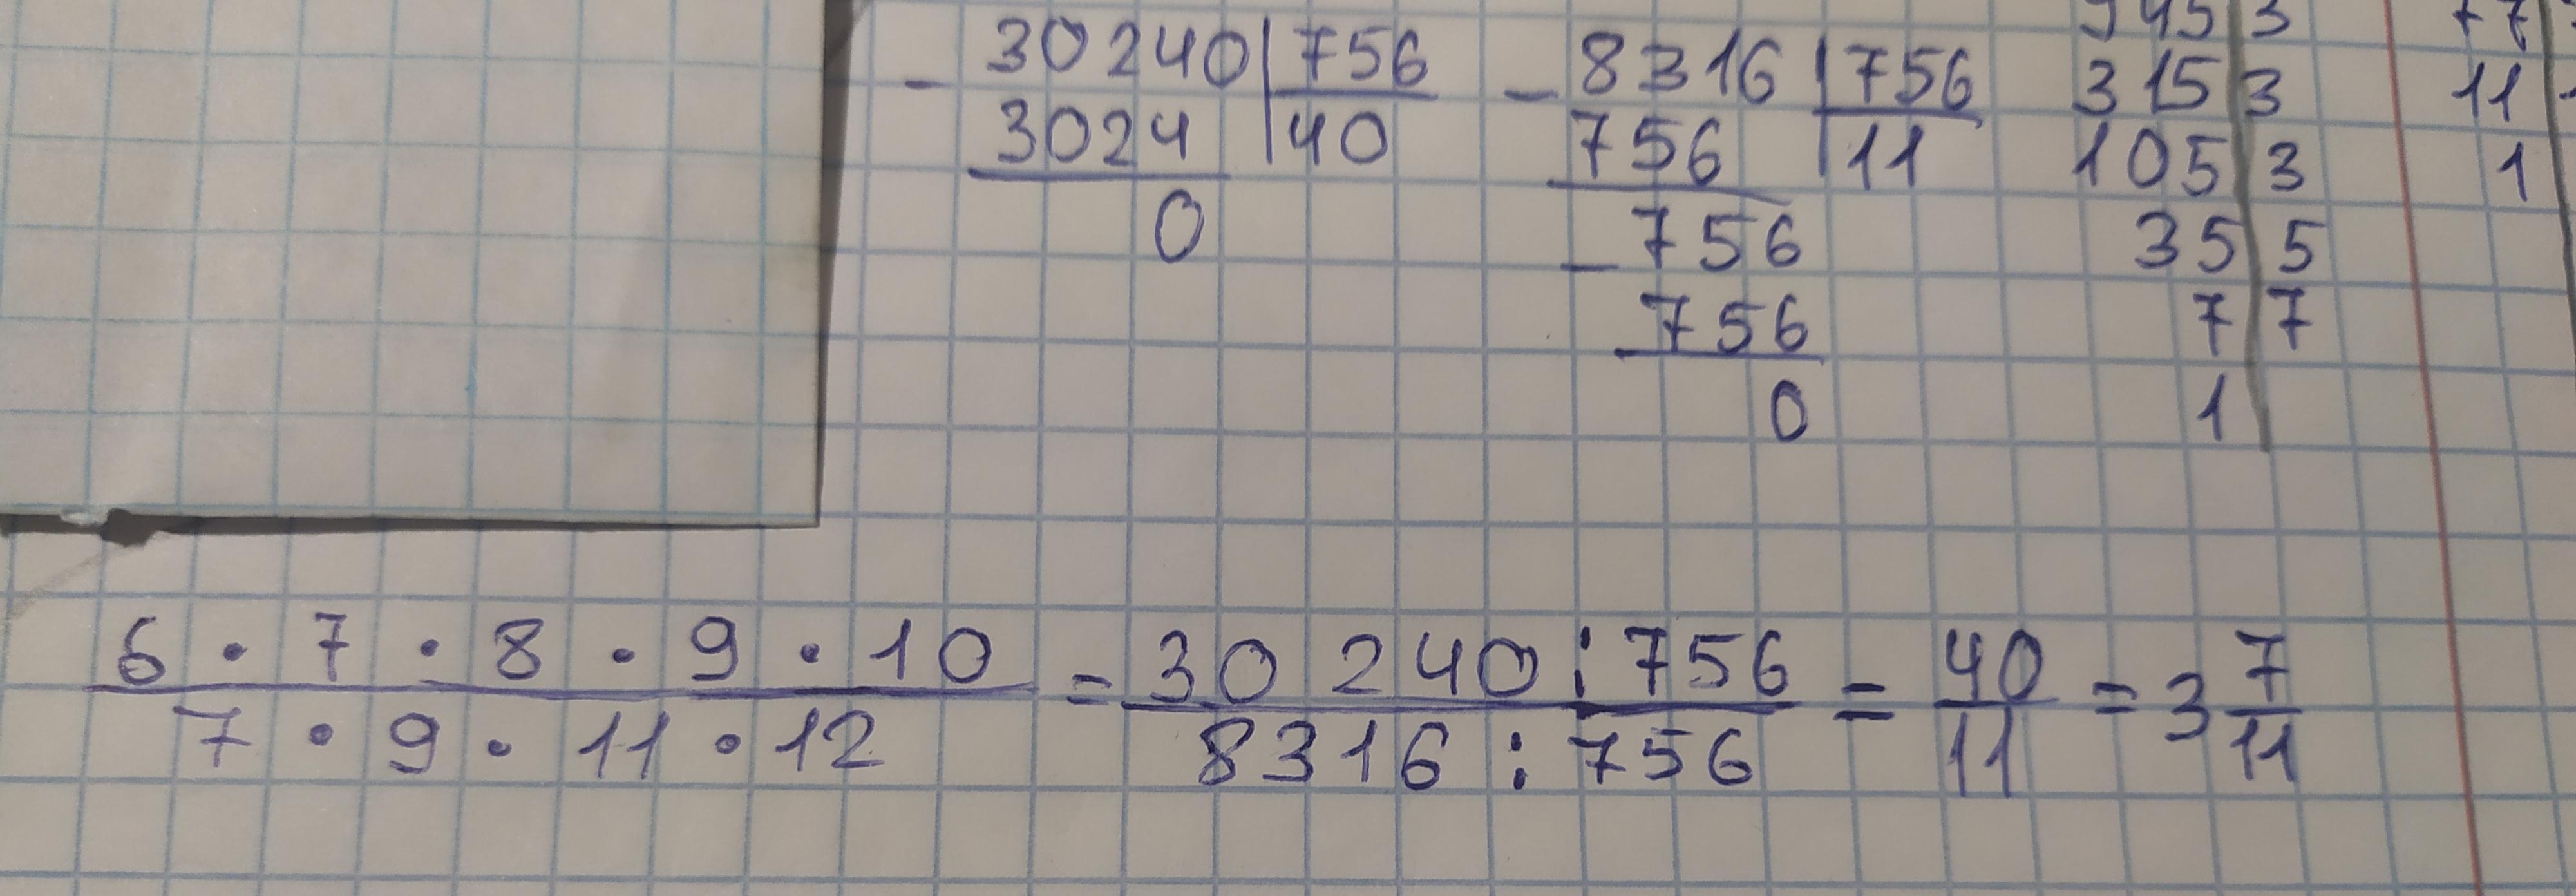 30240 | 756
- 3024 | 40
0
8316 | 756
- 756 | 11
- 756
756
0
945 | 3
315 | 3
105 | 3
35 | 5
7 | 7
1
77
11
1
6 · 7 · 8 · 9 · 10 / 7 · 9 · 11 · 12 = 30 240 : 756 / 8316 : 756 = 40/11 = 3 7/11